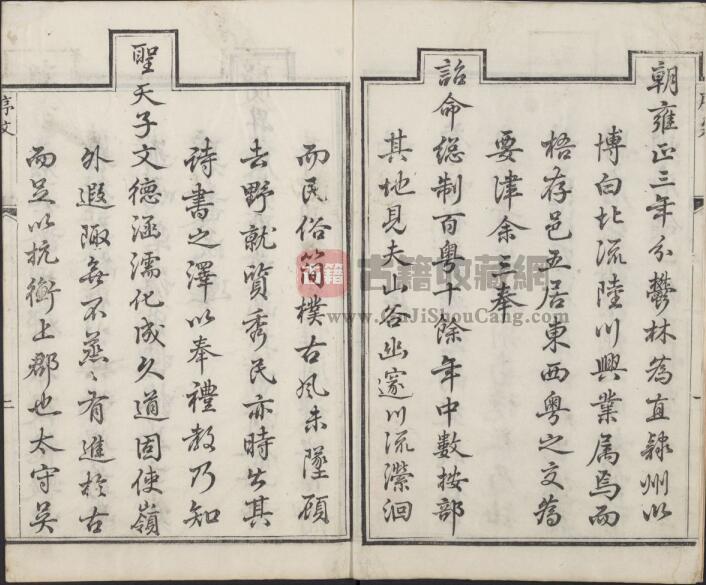 朝雍正三年分鬱林為直隸州以
博白北流陸川興業属焉而
梧存邑五居東西粤之交為
要津余三奉
詔命總制百粤十餘年中數按部
其地見夫山谷幽邃川流瀠洄
而民俗簡樸古風未墜顧
去野就質秀民亦時出其
詩書之澤以奉禮教乃知
聖天子文德涵濡化成久道固使嶺
外遐陬無不蒸蒸有進於古
而足以抗衡上郡也太守吴
序文
二
古籍
古籍收藏网
GuJiShouCang.com